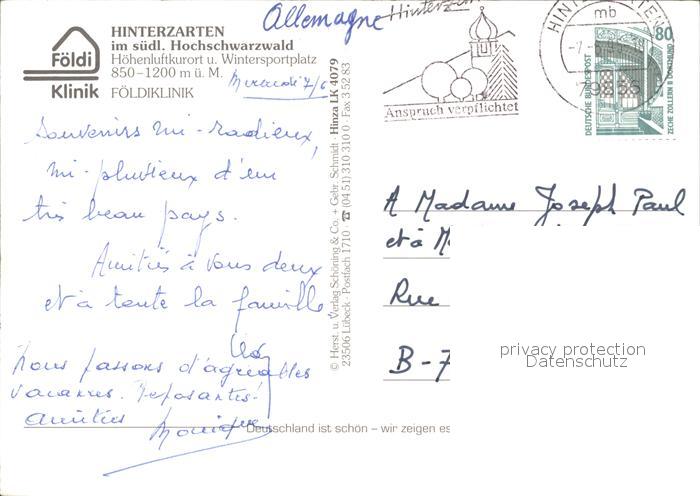 Allemagne
HINTERZARTEN
im südl. Hochschwarzwald
Höhenluftkurort u. Wintersportplatz
850–1200 m ü. M.
FÖLDIKLINIK
Földi
Klinik
Mercredi 7/6
Souvenirs mi-radieux,
mi-pluvieux d'un
très beau pays.
Amitiés à vous deux
et à toute la famille
Nous passons d'agréables
vacances. Reposantes!
Amitiés
Monique
Deutschland ist schön – wir zeigen es
© Horst u. Verlag Schöning & Co. + Gebr. Schmidt · Hinza LK 4079
23506 Lübeck · Postfach 1710 · ☎ (04 51) 310 310 0 · Fax 3 52 83
Hinterzarten
Anspruch verpflichtet
mb
79856
80
DEUTSCHE BUNDESPOST
ZECHE ZOLLERN II DORTMUND
A Madame Joseph Paul
et à M
Rue
B-7
privacy protection
Datenschutz